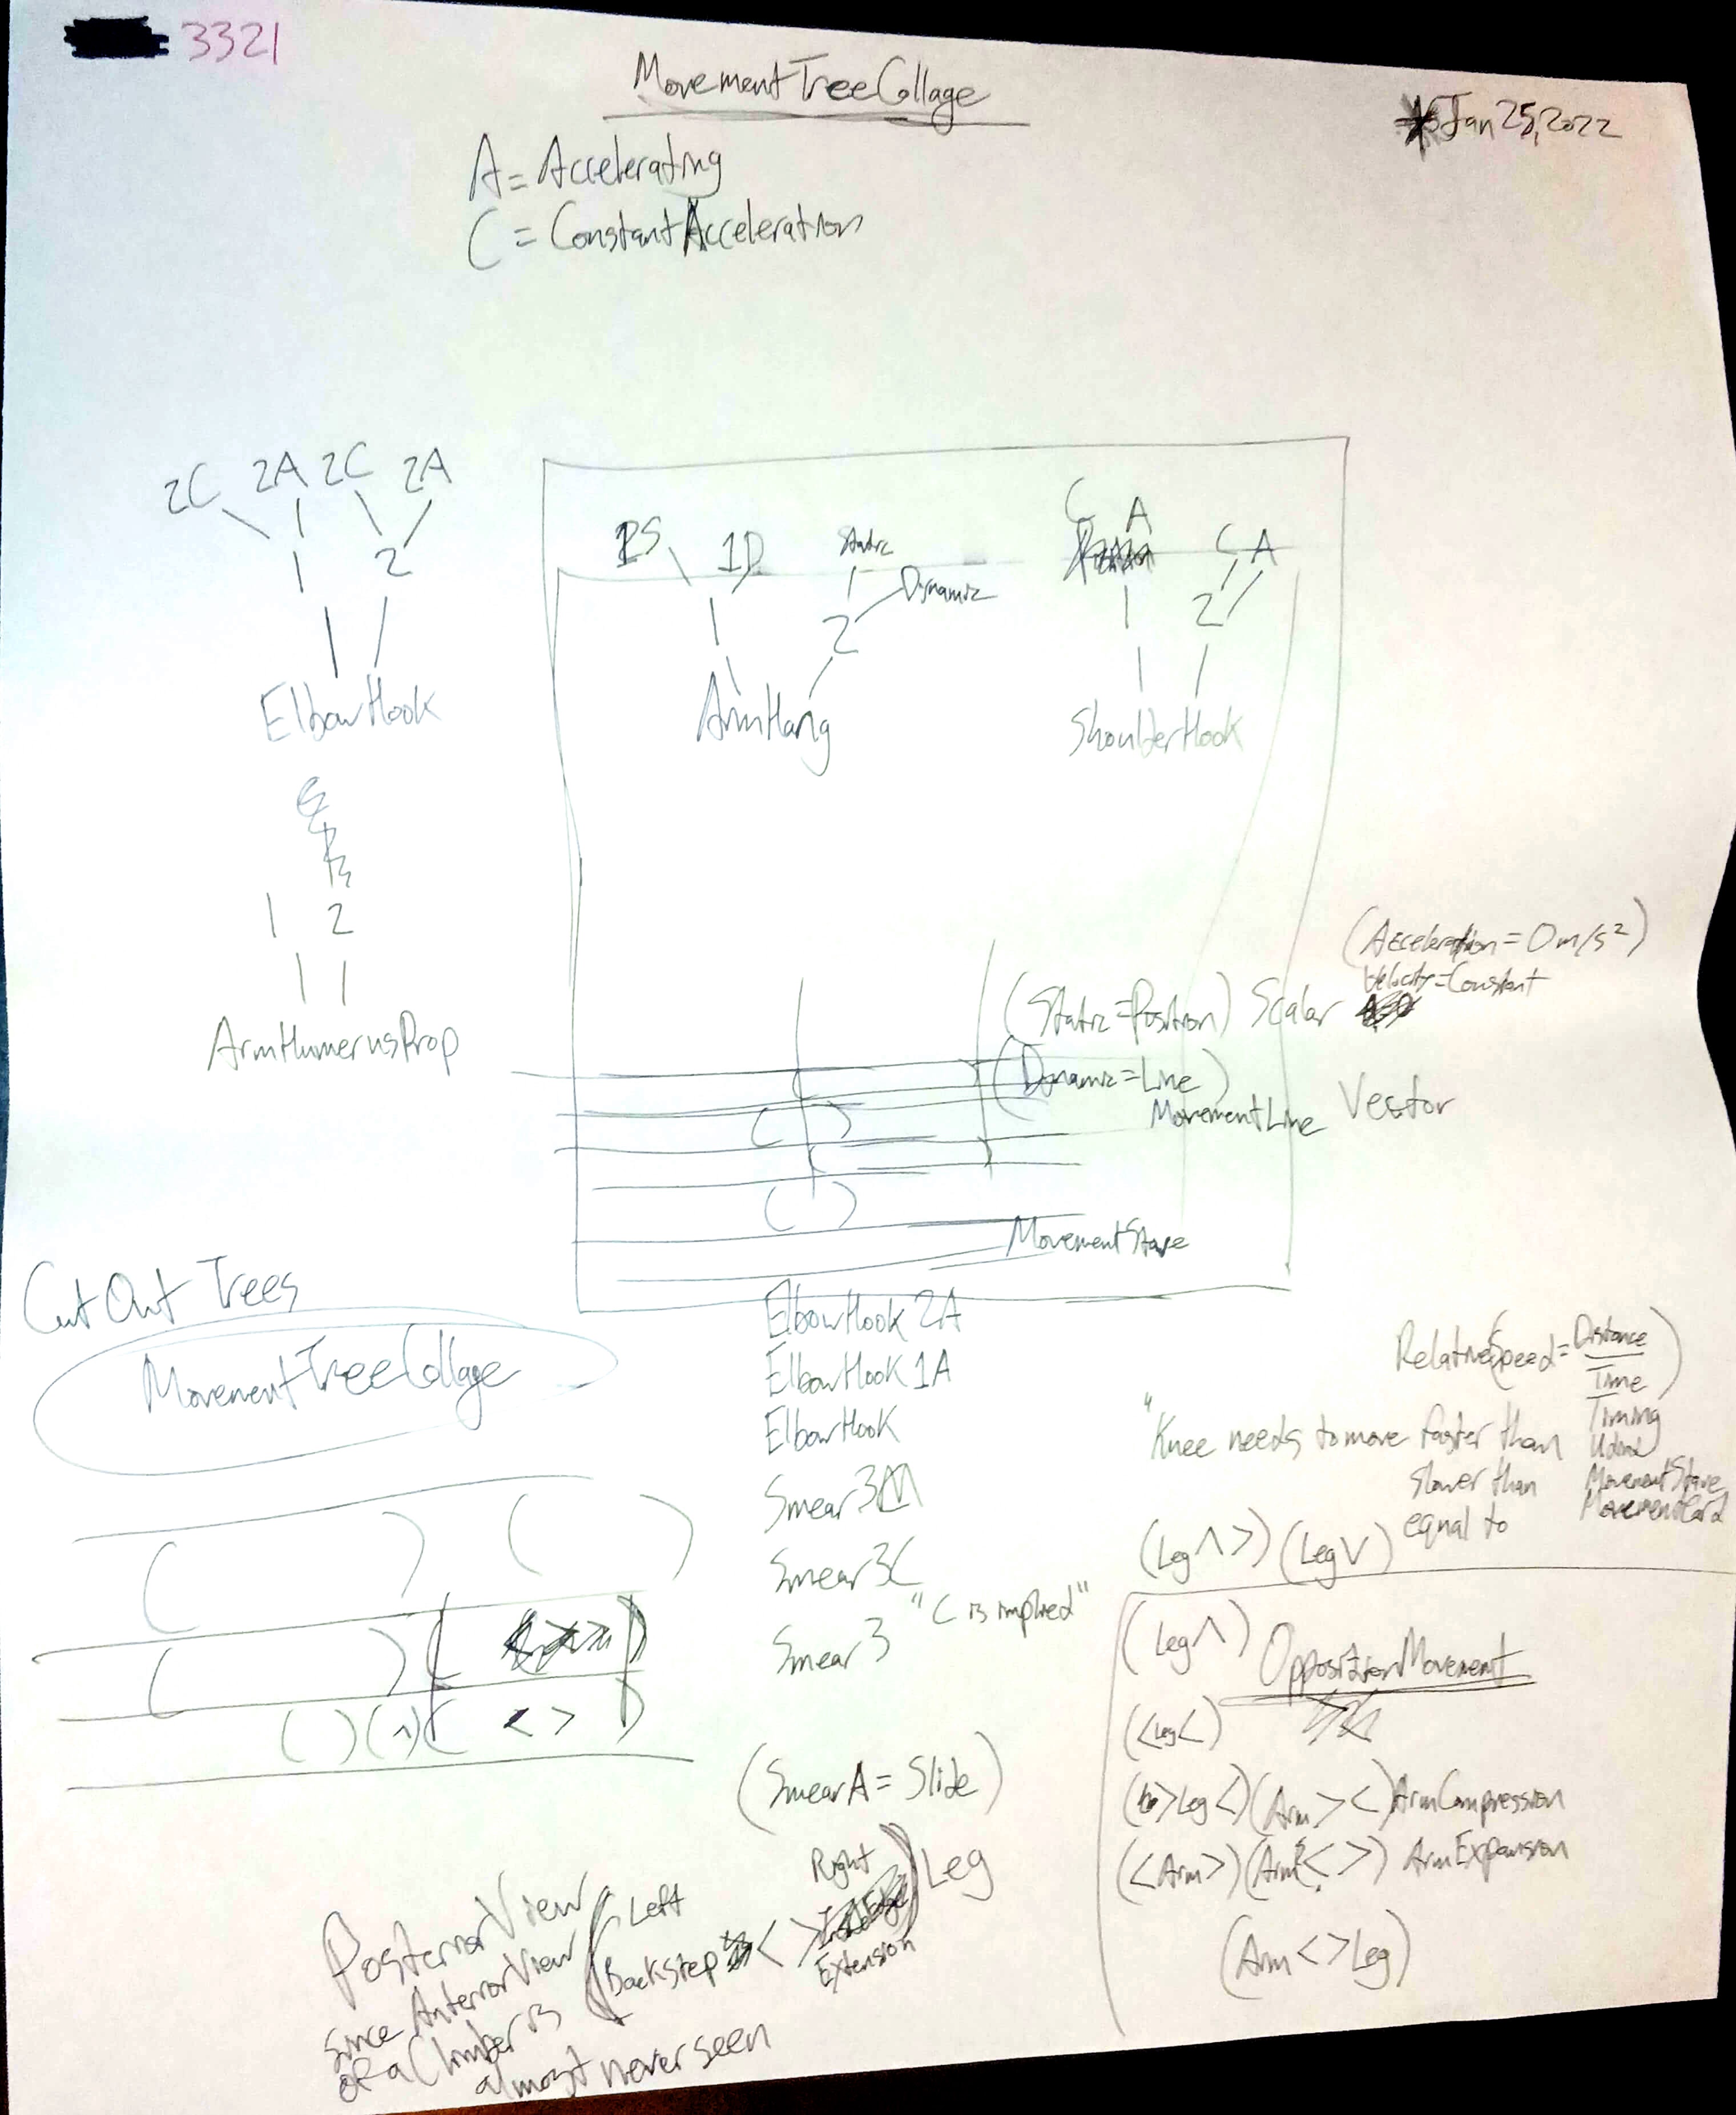 3321
MovementTreeCollage
Jan 25, 2022
A = Accelerating
C = ConstantAcceleration
2C 2A 2C 2A
1 2
ElbowHook
1S 1D Static
Dynamic
2
ArmHang
C A
C A
1 2
ShoulderHook
1 2
ArmHumerusProp
(Acceleration = 0m/s²)
Velocity=Constant
(Static=Position) Scalar
(Dynamic=Line)
MovementLine Vector
( )
( )
MovementStave
Cut Out Trees
MovementTreeCollage
ElbowHook 2A
ElbowHook 1A
ElbowHook
Smear 3M
Smear 3C
Smear 3 "C is implied"
(SmearA = Slide)
( ) ( )
( ) ( )
( ) (^) ( < > )
Relative(Speed = Distance
Time)
Timing
"Knee needs to move faster than
slower than MovementStave
equal to MovementCard
(Leg ∧ >) (Leg ∨)
(Leg ∧) OppositionMovement
(<Leg<)
(>Leg<) (Arm > <) ArmCompression
(<Arm>) (Arm < >) ArmExpansion
(Arm < > Leg)
PosteriorView
since AnteriorView
of a Climber is
almost never seen
(Left Right) Leg
Backstep < > Extension